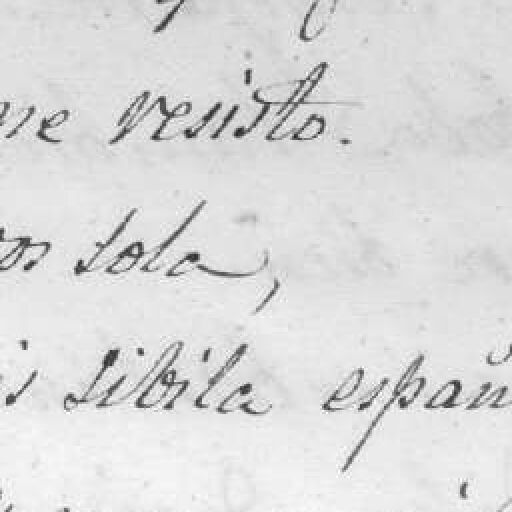 me resisto.
os sola,
is Sibila españ